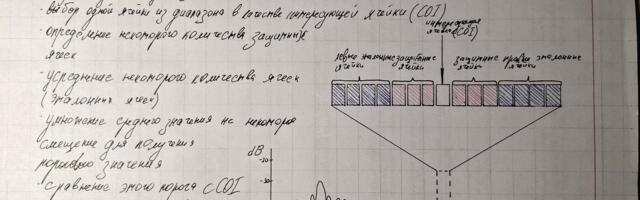 · выбор одной ячейки из диапазона в качестве интересующей ячейки (COI)
· определение некоторого количества защитных
ячеек
· усреднение некоторого количества ячеек
(эталонных ячеек)
· умножение среднего значения на некоторое
смещение для получения
порового значения
· сравнение этого порога с COI
интересующая
ячейка
(COI)
левые эталонные
ячейки
защитные
ячейки
защитные
ячейки
правые эталонные
ячейки
dB
-20
-30